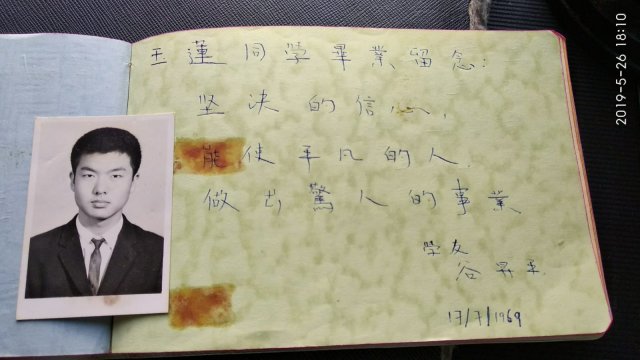 玉蓮同學畢業留念:
坚决的信心,
能使平凡的人,
做出驚人的事業
學友
谷昇平
17/7/1969
2019-5-26 18:10